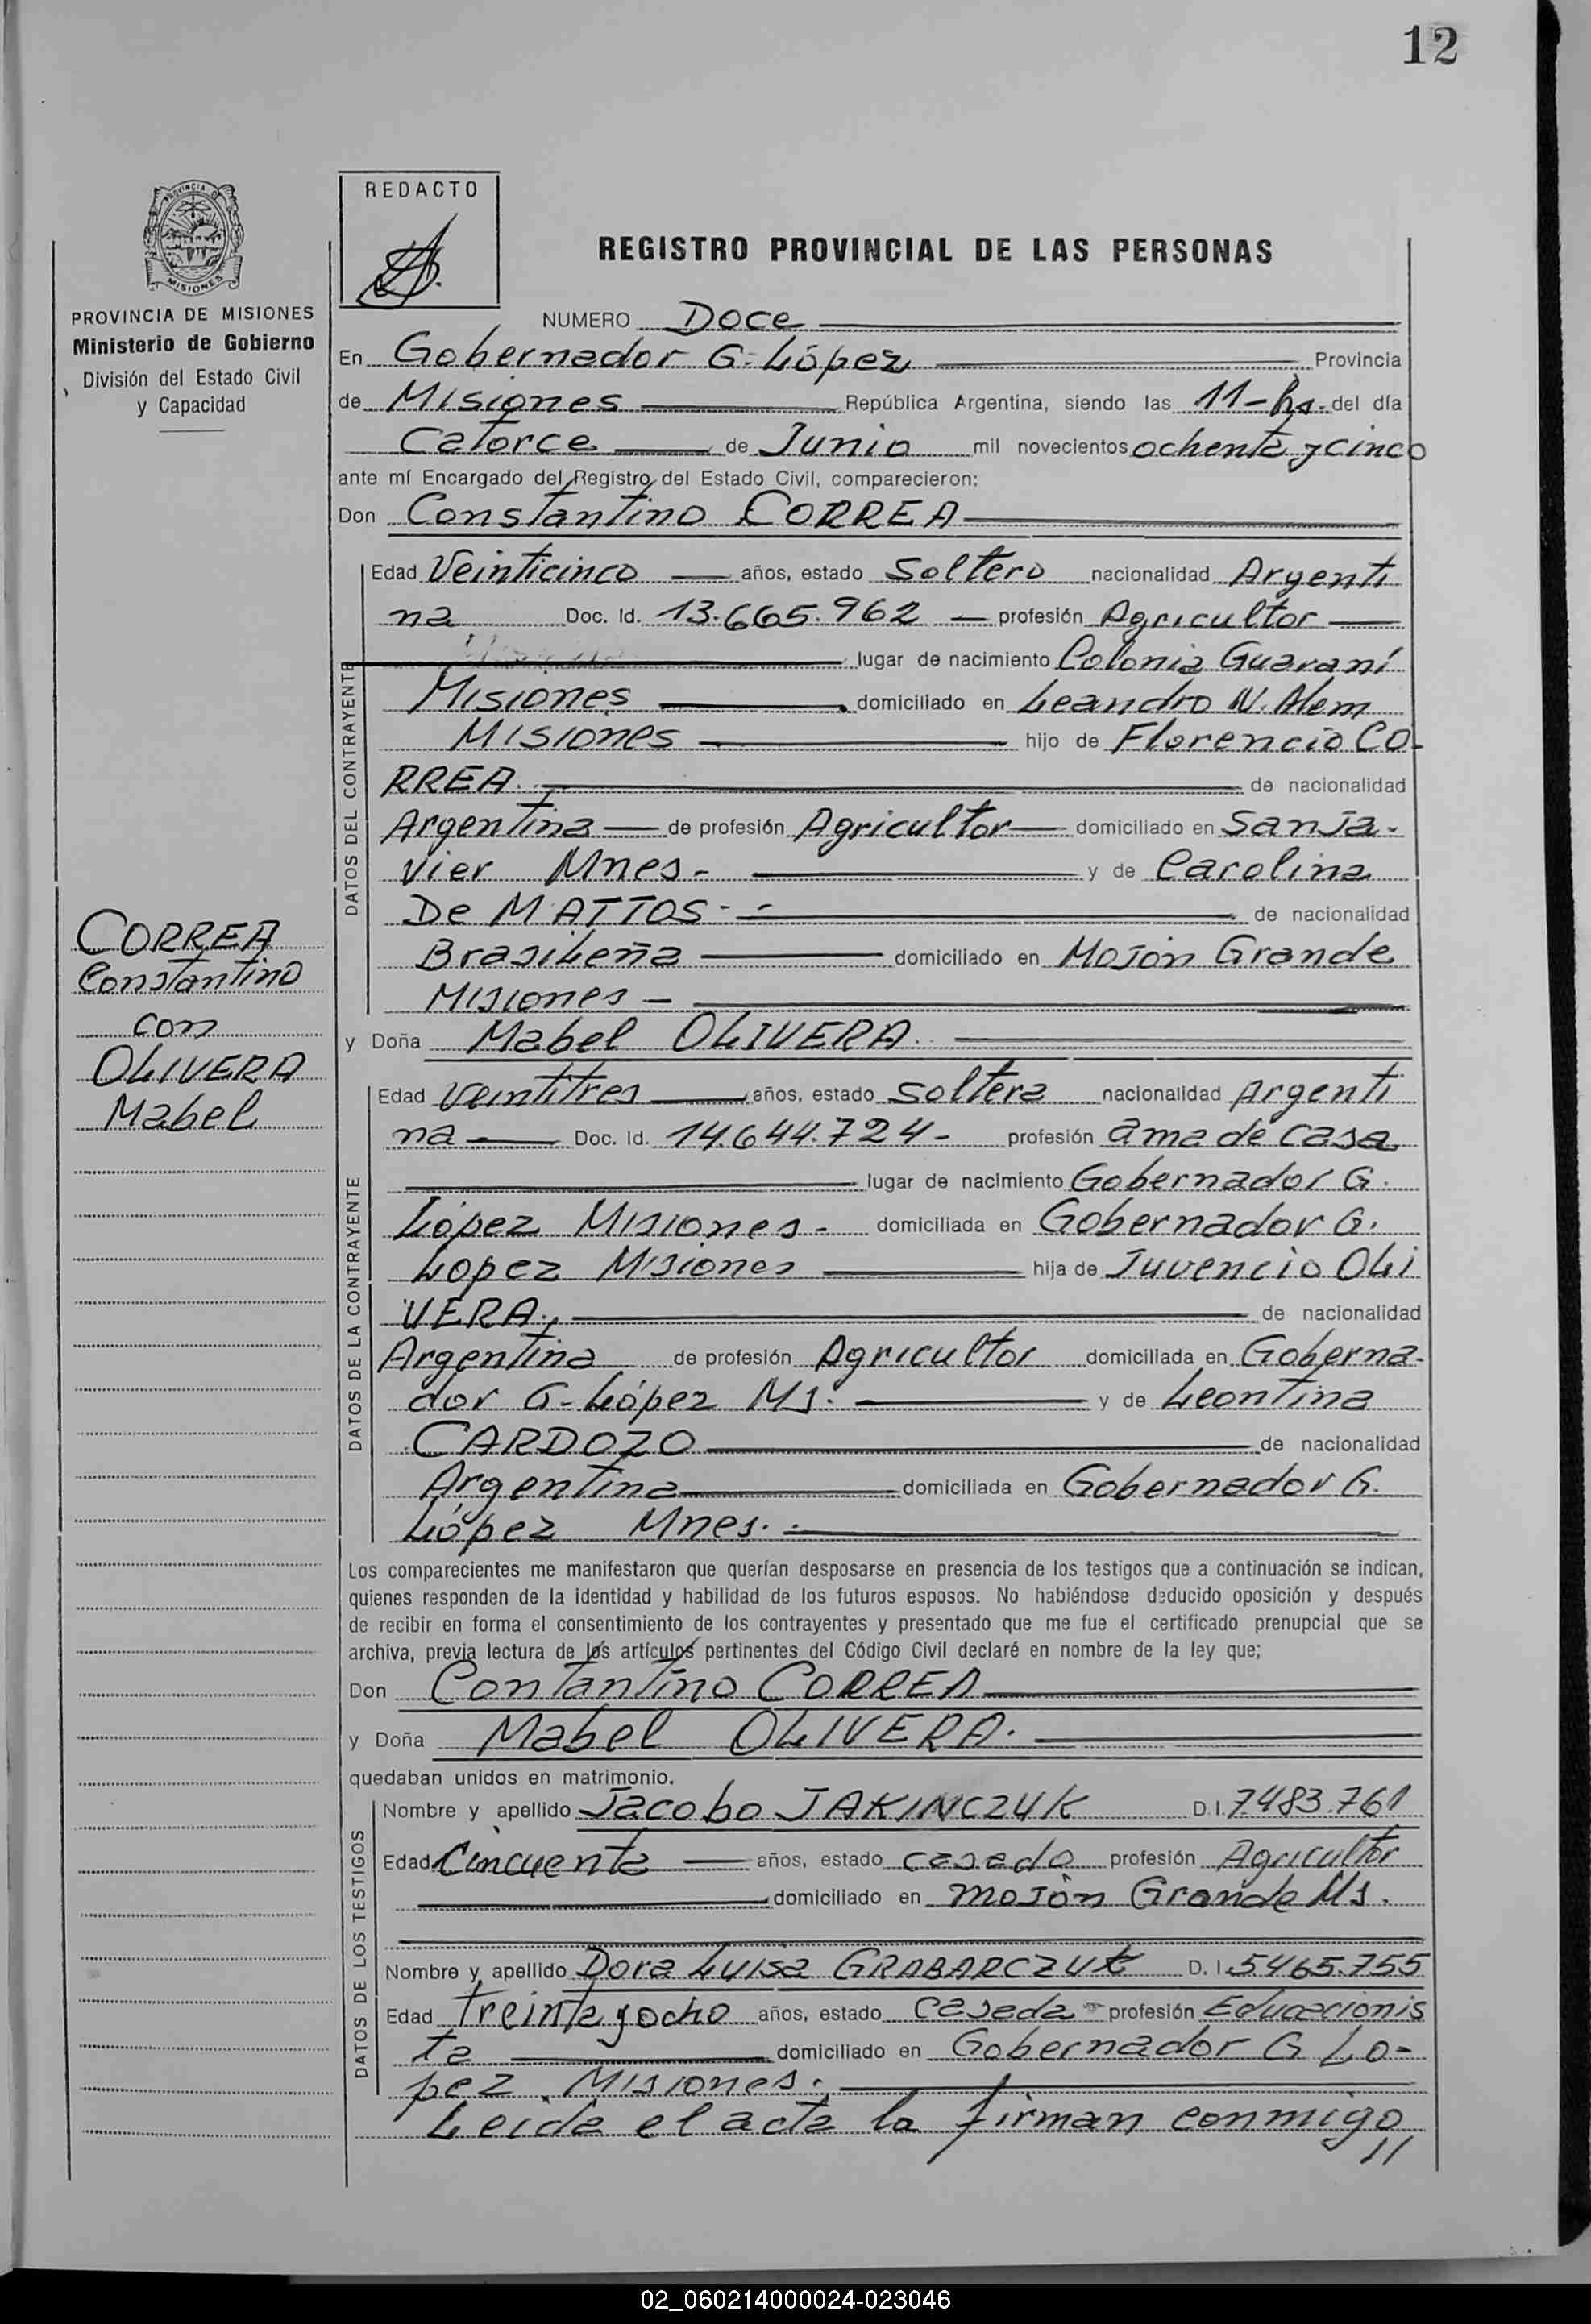 12
REDACTO
REGISTRO PROVINCIAL DE LAS PERSONAS
PROVINCIA DE
MISIONES
PROVINCIA DE MISIONES
Ministerio de Gobierno
División del Estado Civil
y Capacidad
NUMERO Doce
En Gobernador G. López Provincia
de Misiones República Argentina, siendo las 11-hs. del día
Catorce de Junio mil novecientos ochenta y cinco
ante mí Encargado del Registro del Estado Civil, comparecieron:
Don Constantino CORREA
DATOS DEL CONTRAYENTE
Edad Veinticinco años, estado Soltero nacionalidad Argenti
na Doc. Id. 13.665.962 — profesión Agricultor
lugar de nacimiento Colonia Guaraní
Misiones domiciliado en Leandro N. Alem
Misiones hijo de Florencio CO-
RREA. de nacionalidad
Argentina — de profesión Agricultor — domiciliado en San Ja-
vier Mnes.- y de Carolina
De MATTOS.- de nacionalidad
Brasileña domiciliado en Mojón Grande
Misiones —
CORREA
Constantino
con
OLIVERA
Mabel
y Doña Mabel OLIVERA.
DATOS DE LA CONTRAYENTE
Edad Veintitres años, estado Soltera nacionalidad Argenti
na — Doc. Id. 14.644.724- profesión ama de casa
lugar de nacimiento Gobernador G.
López Misiones - domiciliada en Gobernador G.
Lopez Misiones hija de Juvencio OLI
VERA., de nacionalidad
Argentina de profesión Agricultor domiciliada en Goberna-
dor G. López Ms. y de Leontina
CARDOZO de nacionalidad
Argentina domiciliada en Gobernador G.
López Mnes.
Los comparecientes me manifestaron que querían desposarse en presencia de los testigos que a continuación se indican,
quienes responden de la identidad y habilidad de los futuros esposos. No habiéndose deducido oposición y después
de recibir en forma el consentimiento de los contrayentes y presentado que me fue el certificado prenupcial que se
archiva, previa lectura de los artículos pertinentes del Código Civil declaré en nombre de la ley que;
Don Contantino CORREA
y Doña Mabel OLIVERA.
quedaban unidos en matrimonio.
DATOS DE LOS TESTIGOS
Nombre y apellido Jacobo JAKINCZUK D.I. 7483.761
Edad Cincuenta — años, estado casado profesión Agricultor
domiciliado en Mojón Grande Ms.
Nombre y apellido Dora Luisa GRABARCZUK D. I. 5465.755
Edad Treinta y ocho años, estado Casada profesión Educacionis
ta domiciliado en Gobernador G Lo-
pez. Misiones.
Leida el acta la firman conmigo
//
02_060214000024-023046